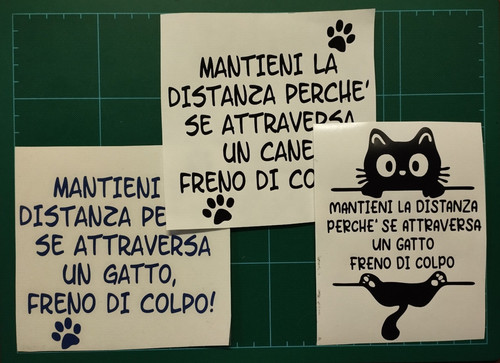 MANTIENI LA
DISTANZA PERCHE'
SE ATTRAVERSA
UN CANE
FRENO DI
MANTIENI
DISTANZA
SE ATTRAVERSA
UN GATTO,
FRENO DI COLPO!
MANTIENI LA DISTANZA
PERCHE' SE ATTRAVERSA
UN GATTO
FRENO DI COLPO